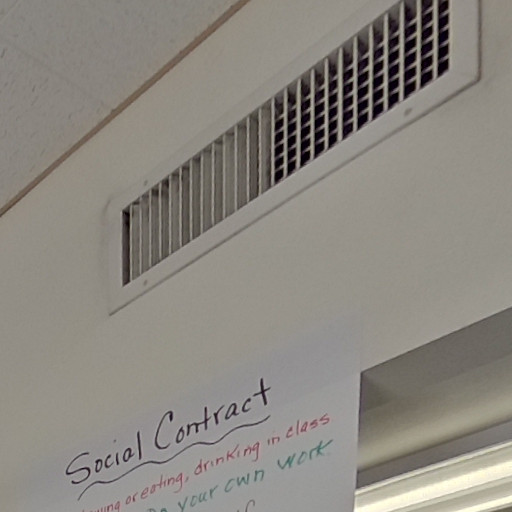 Social Contract
or eating, drinking in class
your own work.